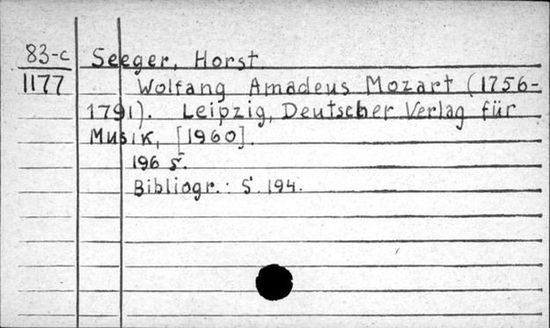 83-c Seeger, Horst
1177 Wolfang Amadeus Mozart (1756-
1791). Leipzig, Deutscher Verlag für
Musik, [1960].
196 S.
Bibliogr.: S. 194.